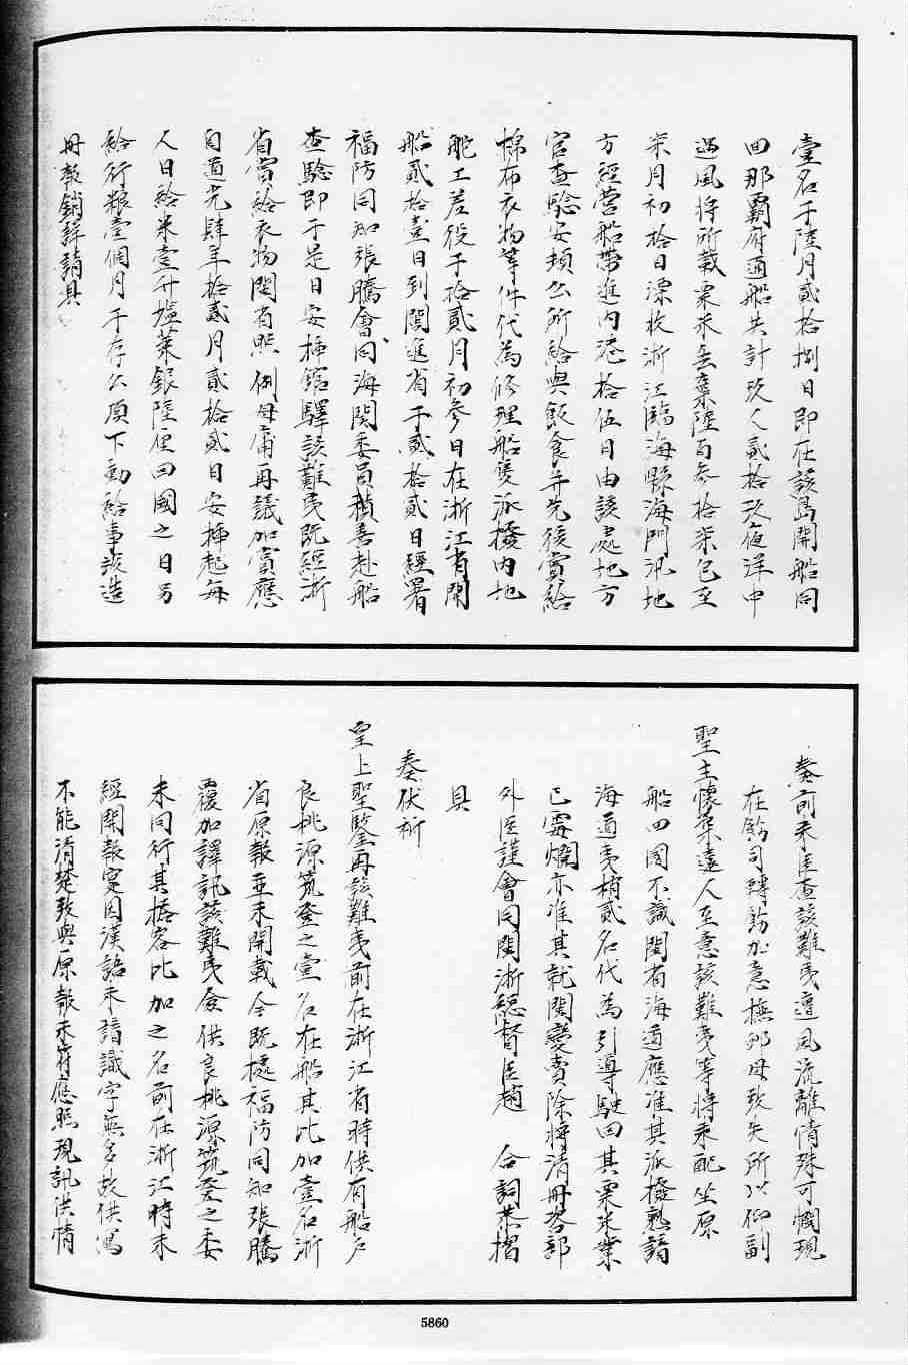 壹名于陸月貳拾捌日即在該島開船同
回那霸府通船共計玖人貳拾玖夜洋中
遇風將所載粟米丟棄陸百叁拾柒包至
柒月初拾日漂收浙江臨海縣海門汛地
方經營船帶進內港拾伍日由該處地方
官查驗安頓公所給與飯食并先後賞給
棉布衣物等件代為修理船隻派撥內地
舵工差役于拾貳月初參日在浙江省開
船貳拾壹日到閩進省于貳拾貳日經署
福防同知張騰會同海關委員積善赴船
查驗即于是日安插館驛該難夷既經浙
省賞給衣物閩省照例毋庸再議加賞應
自道光肆年拾貳月貳拾貳日安插起每
人日給米壹升塩菜銀陸厘回國之日另
給行粮壹個月于存公項下動給事竣造
冊報銷詳請具
奏前來臣查該難夷遭風流離情殊可憫現
在飭司轉飭加意撫卹毋致失所以仰副
聖主懷柔遠人至意該難夷等將來配坐原
船回國不識閩省海道應准其派撥熟諳
海道夷梢貳名代為引導駛回其粟米業
已霉爛亦准其就閩變賣除將清冊咨部
外臣謹會同閩浙總督臣趙 合詞恭摺
具
奏伏祈
皇上聖鑒再該難夷前在浙江省時供有船戶
良桃源筑登之壹名在船其比加壹名浙
省原報並未開載今既據福防同知張騰
覆加譯訊該難夷僉供良桃源筑登之委
未同行其搭客比加之名前在浙江時未
經開報寔因漢語未諳識字無多故供寫
不能清楚致與原報未符應照現訊供情
5860